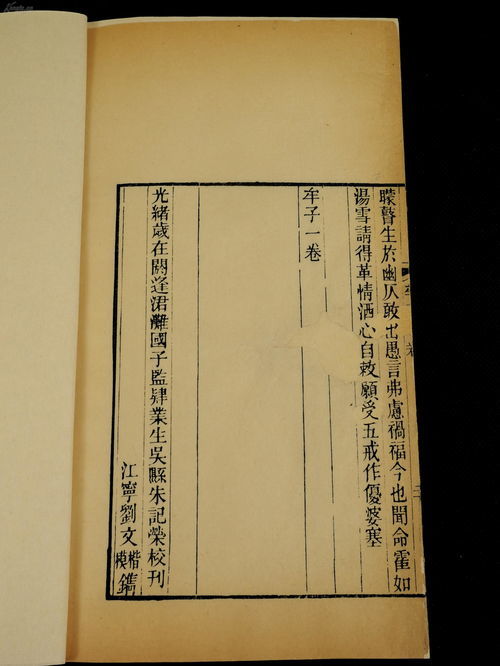 矇瞽生於幽仄敢出愚言弗慮禍福今也聞命霍如
湯雪請得革情洒心自敕願受五戒作優婆塞
牟子一卷
光緒歲在閼逢涒灘國子監肄業生吳縣朱記榮校刊
江寧劉文楷模鐫